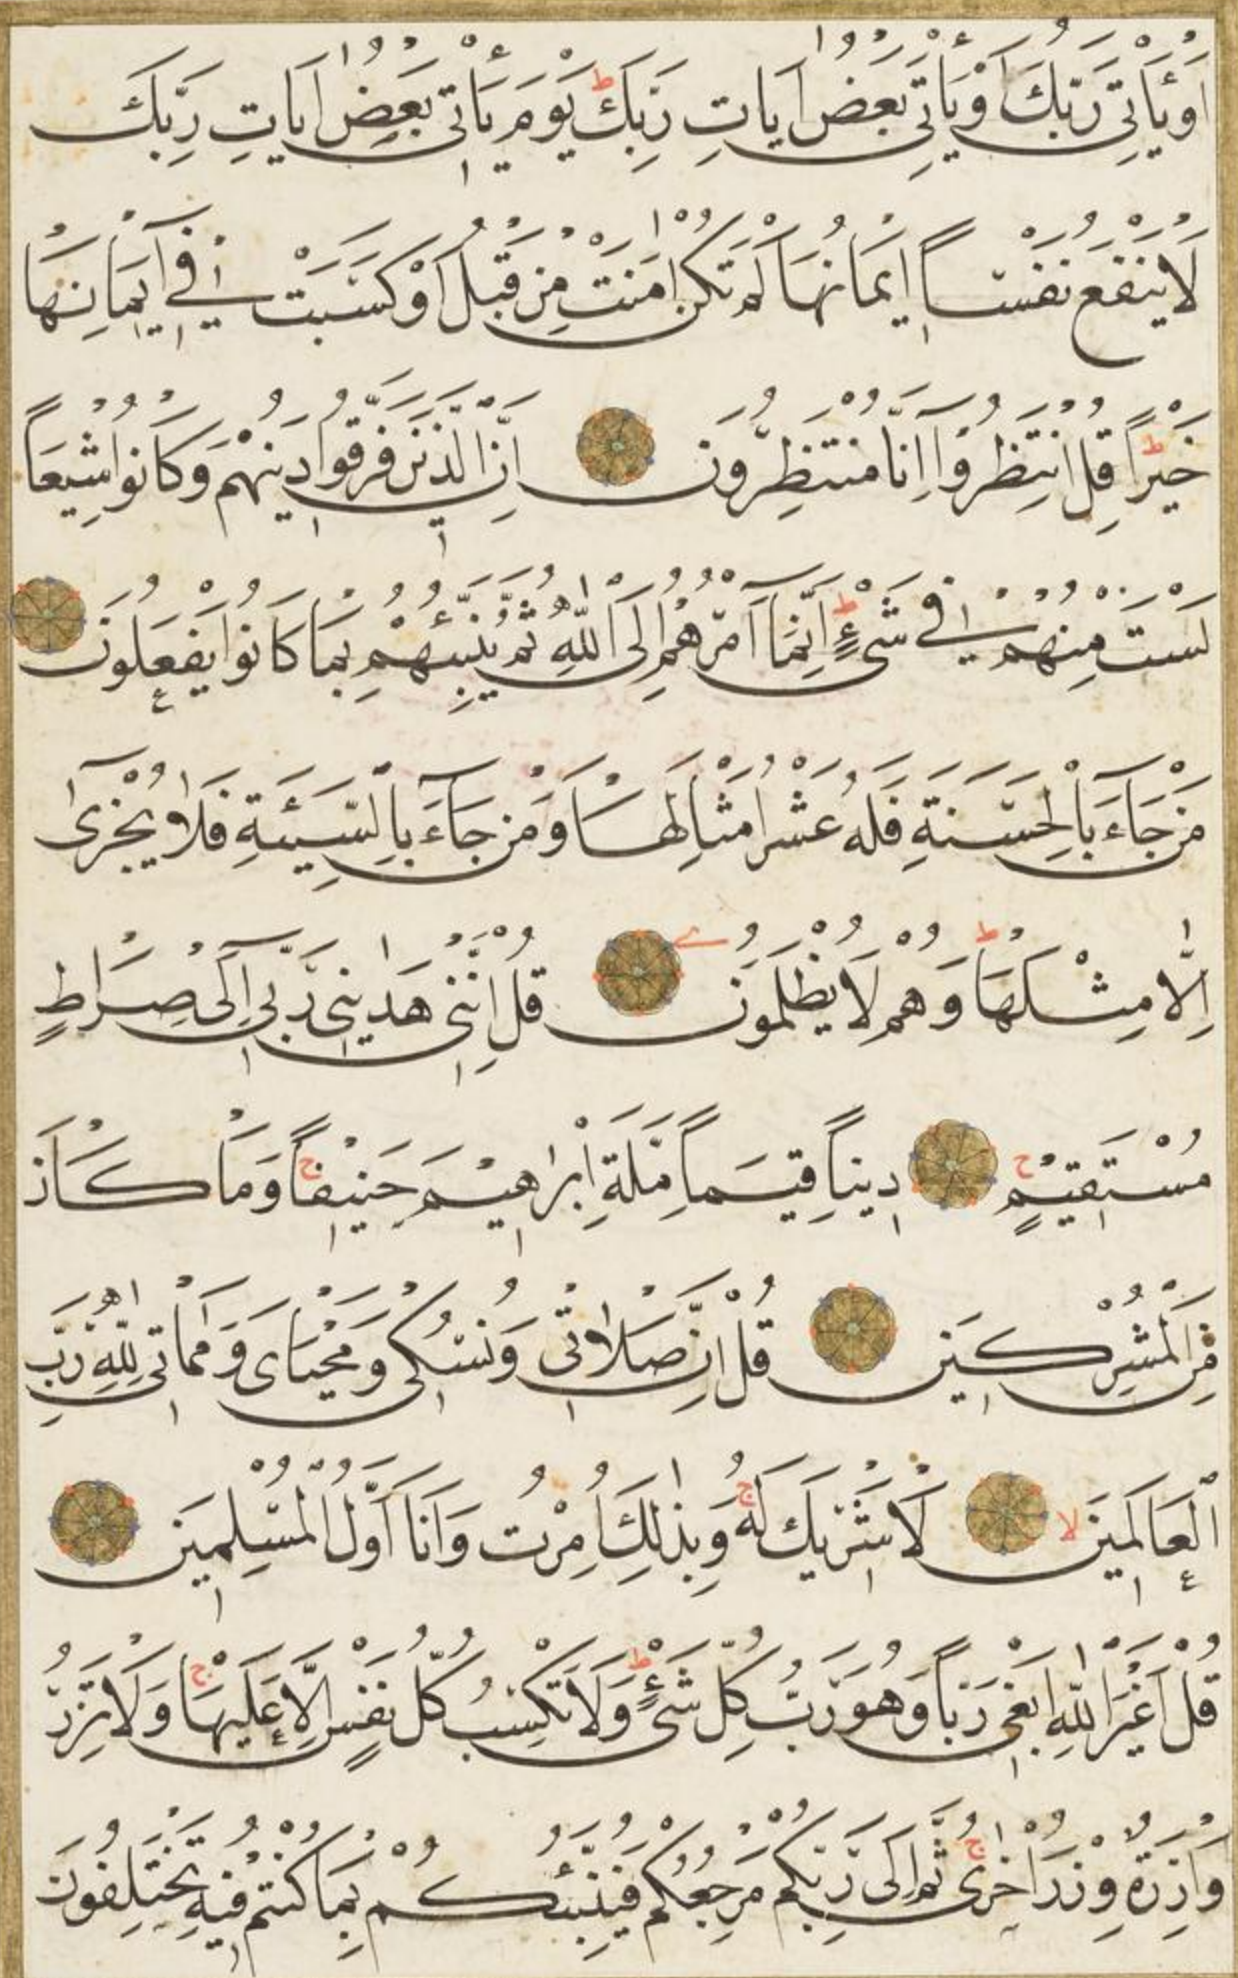 اَوْ يَأْتِيَ رَبُّكَ اَوْ يَأْتِيَ بَعْضُ اٰيَاتِ رَبِّكَ ط يَوْمَ يَأْتِي بَعْضُ اٰيَاتِ رَبِّكَ
لَا يَنْفَعُ نَفْسًا اِيمَانُهَا لَمْ تَكُنْ اٰمَنَتْ مِنْ قَبْلُ اَوْ كَسَبَتْ فِي اِيمَانِهَا
خَيْرًا ط قُلِ انْتَظِرُوا اِنَّا مُنْتَظِرُونَ اِنَّ الَّذِينَ فَرَّقُوا دِينَهُمْ وَكَانُوا شِيَعًا
لَسْتَ مِنْهُمْ فِي شَيْءٍ ط اِنَّمَا اَمْرُهُمْ اِلَى اللّٰهِ ثُمَّ يُنَبِّئُهُمْ بِمَا كَانُوا يَفْعَلُونَ
مَنْ جَاءَ بِالْحَسَنَةِ فَلَهُ عَشْرُ اَمْثَالِهَا وَمَنْ جَاءَ بِالسَّيِّئَةِ فَلَا يُجْزٰى
اِلَّا مِثْلَهَا ط وَهُمْ لَا يُظْلَمُونَ قُلْ اِنَّنِي هَدٰينِي رَبِّي اِلٰى صِرَاطٍ
مُسْتَقِيمٍ ح دِينًا قِيَمًا مِلَّةَ اِبْرٰهِيمَ حَنِيفًا ج وَمَا كَانَ
مِنَ الْمُشْرِكِينَ قُلْ اِنَّ صَلَاتِي وَنُسُكِي وَمَحْيَايَ وَمَمَاتِي لِلّٰهِ رَبِّ
الْعَالَمِينَ لا لَا شَرِيكَ لَهُ ج وَبِذٰلِكَ اُمِرْتُ وَاَنَا اَوَّلُ الْمُسْلِمِينَ
قُلْ اَغَيْرَ اللّٰهِ اَبْغِي رَبًّا وَهُوَ رَبُّ كُلِّ شَيْءٍ ط وَلَا تَكْسِبُ كُلُّ نَفْسٍ اِلَّا عَلَيْهَا ج وَلَا تَزِرُ
وَازِرَةٌ وِزْرَ اُخْرٰى ج ثُمَّ اِلٰى رَبِّكُمْ مَرْجِعُكُمْ فَيُنَبِّئُكُمْ بِمَا كُنْتُمْ فِيهِ تَخْتَلِفُونَ